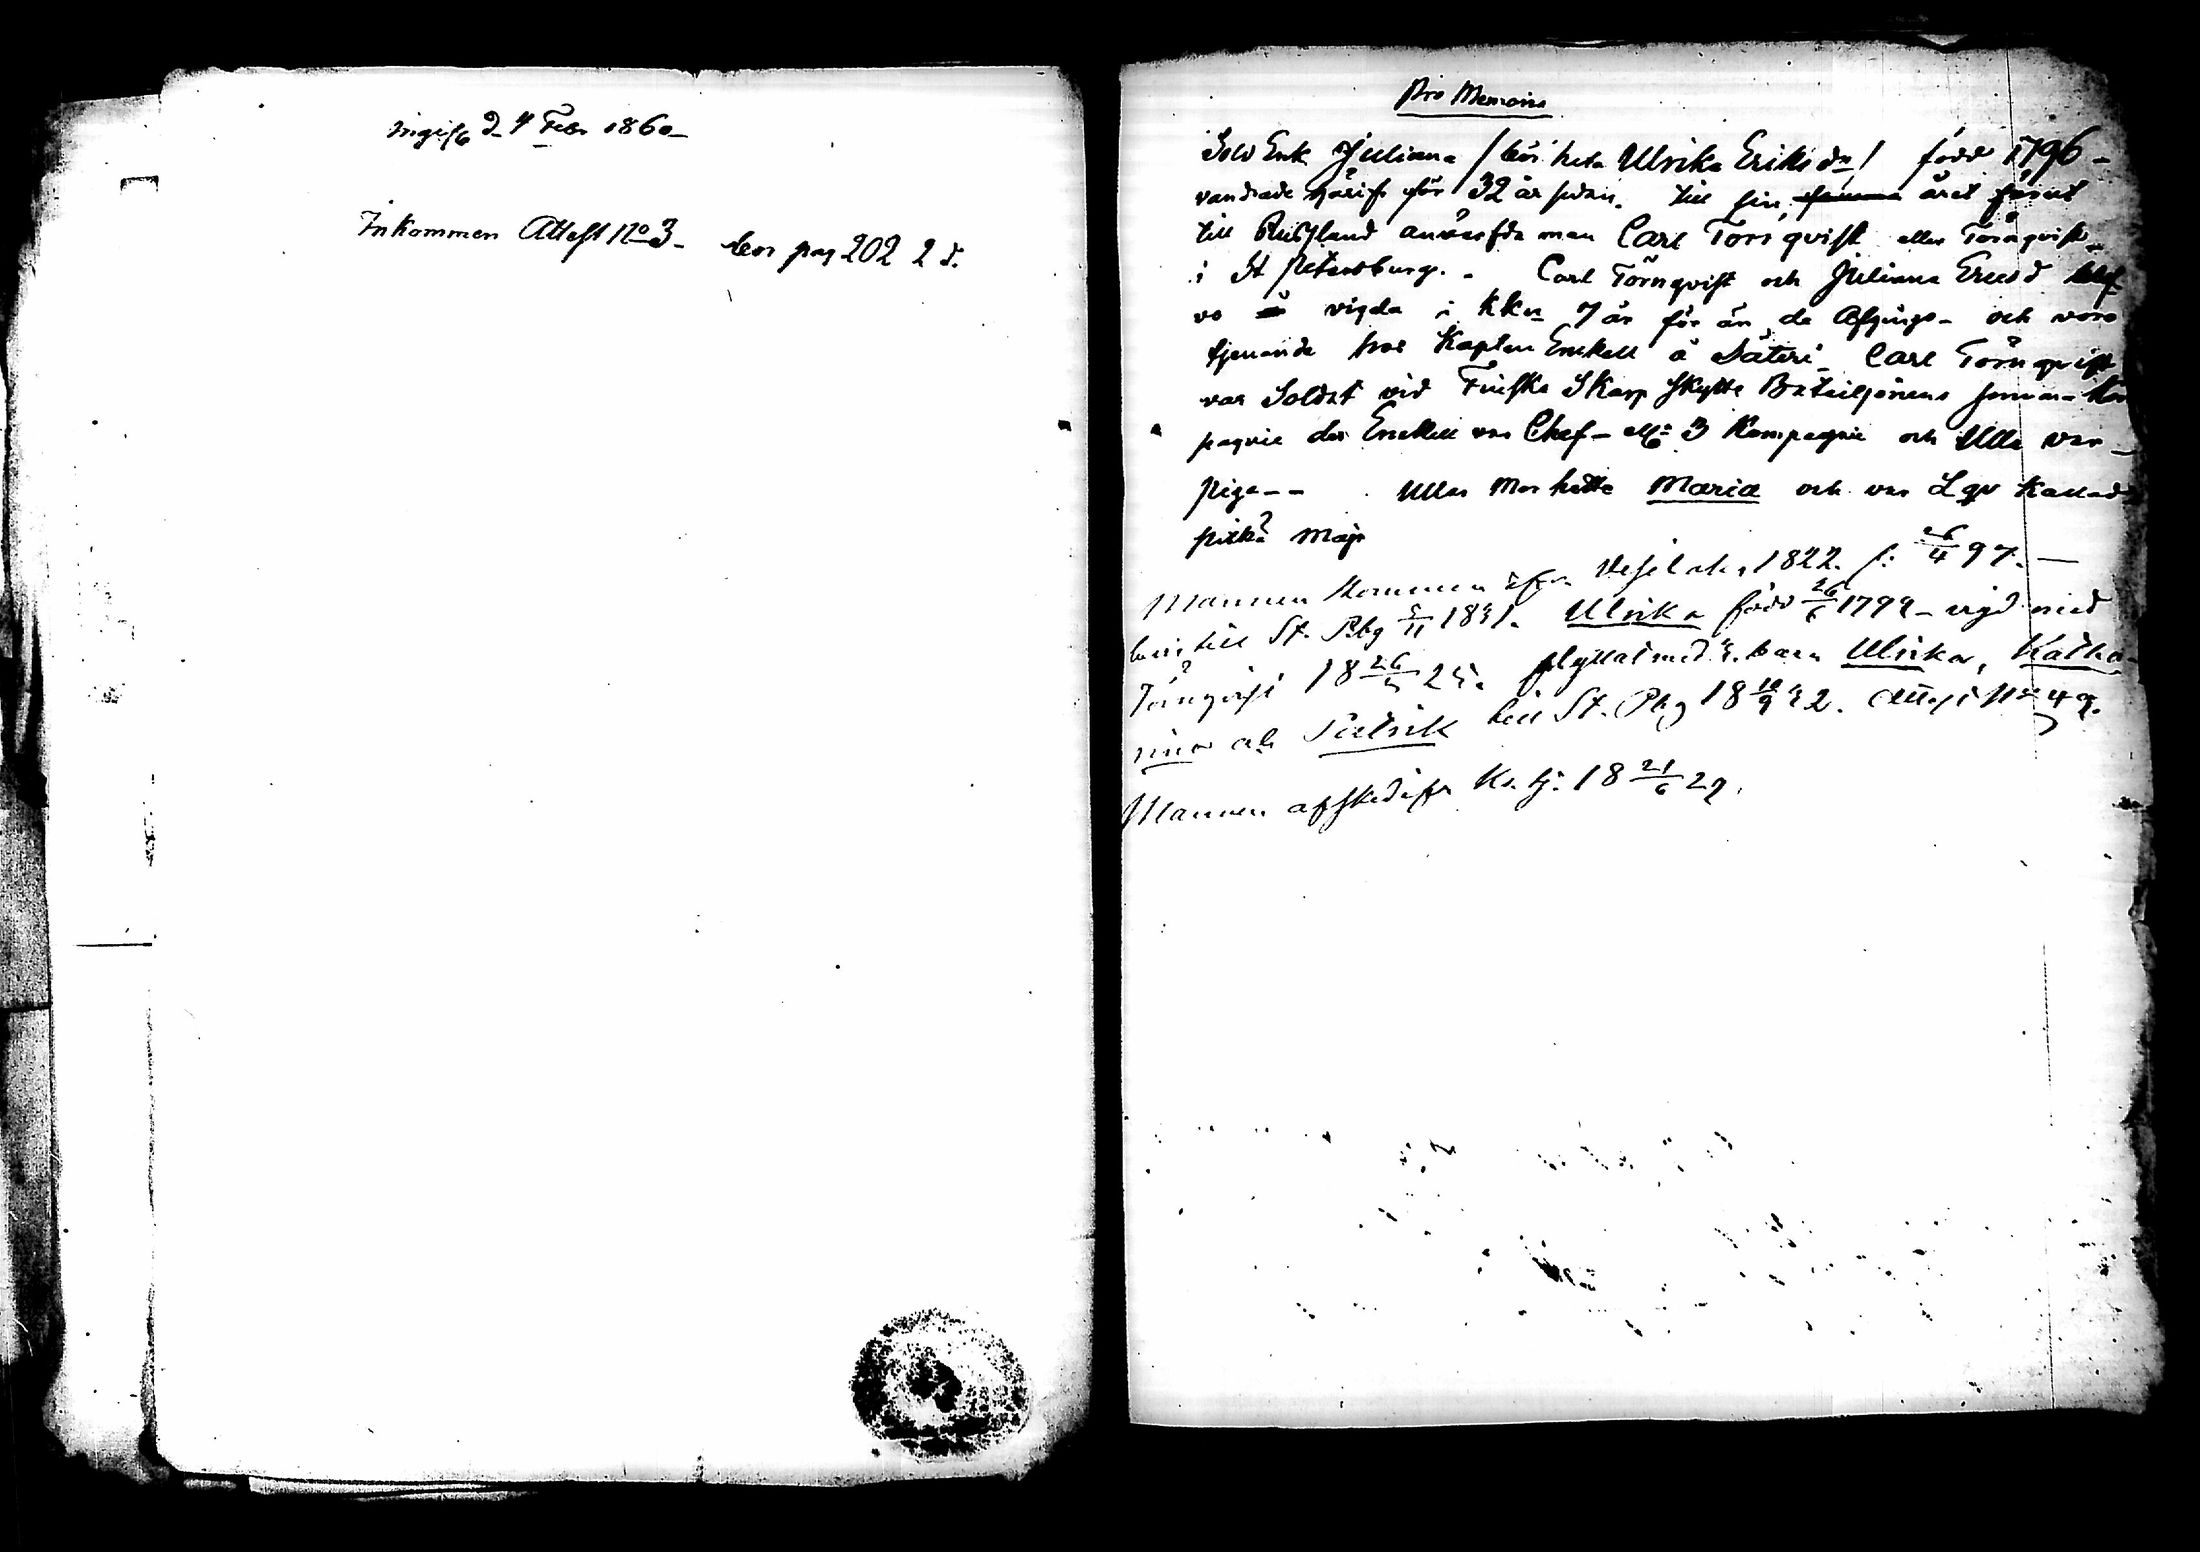 d 4 Febr 1860
Inkommen Attest No 3 - pag 202 2 d.
Pro Memoria
Sold Enk Juliana / bör heta Ulrika Eriksdr / född 1796 -
vandrade härifr för 32 år sedan. till sin året förut
till Ryssland man Carl Törnqvist eller Törnqvist
i St Petersburg. - Carl Törnqvist och Juliana Ericsd
vo vigda i KKn 7 år för än de Afgingo - och voro
tjenande hos Kapten Enckell å Säteri Carl Törnqvist
var Soldat vid Finska Skarp Skytte Batailjonens
pagnie der Enckell var Chef - No 3 Kompagnie och Ulla var
piga - - Ullas Mor hette Maria och var Kallad
pitkä Maja
Mannen kommen ifrn Vesilaks 1822. f. 26/4 97. -
till St. Pbg 5/11 1831. Ulrika född 26/6 1799 - vigd med
Törnqvist 18 26/ 25. flyttat med 3. barn Ulrika, Katha-
rina och till St. Pbg 18 10/9 32. Attest No 49.
Mannen afsked ifrn Kr. tj. 18 21/6 29.